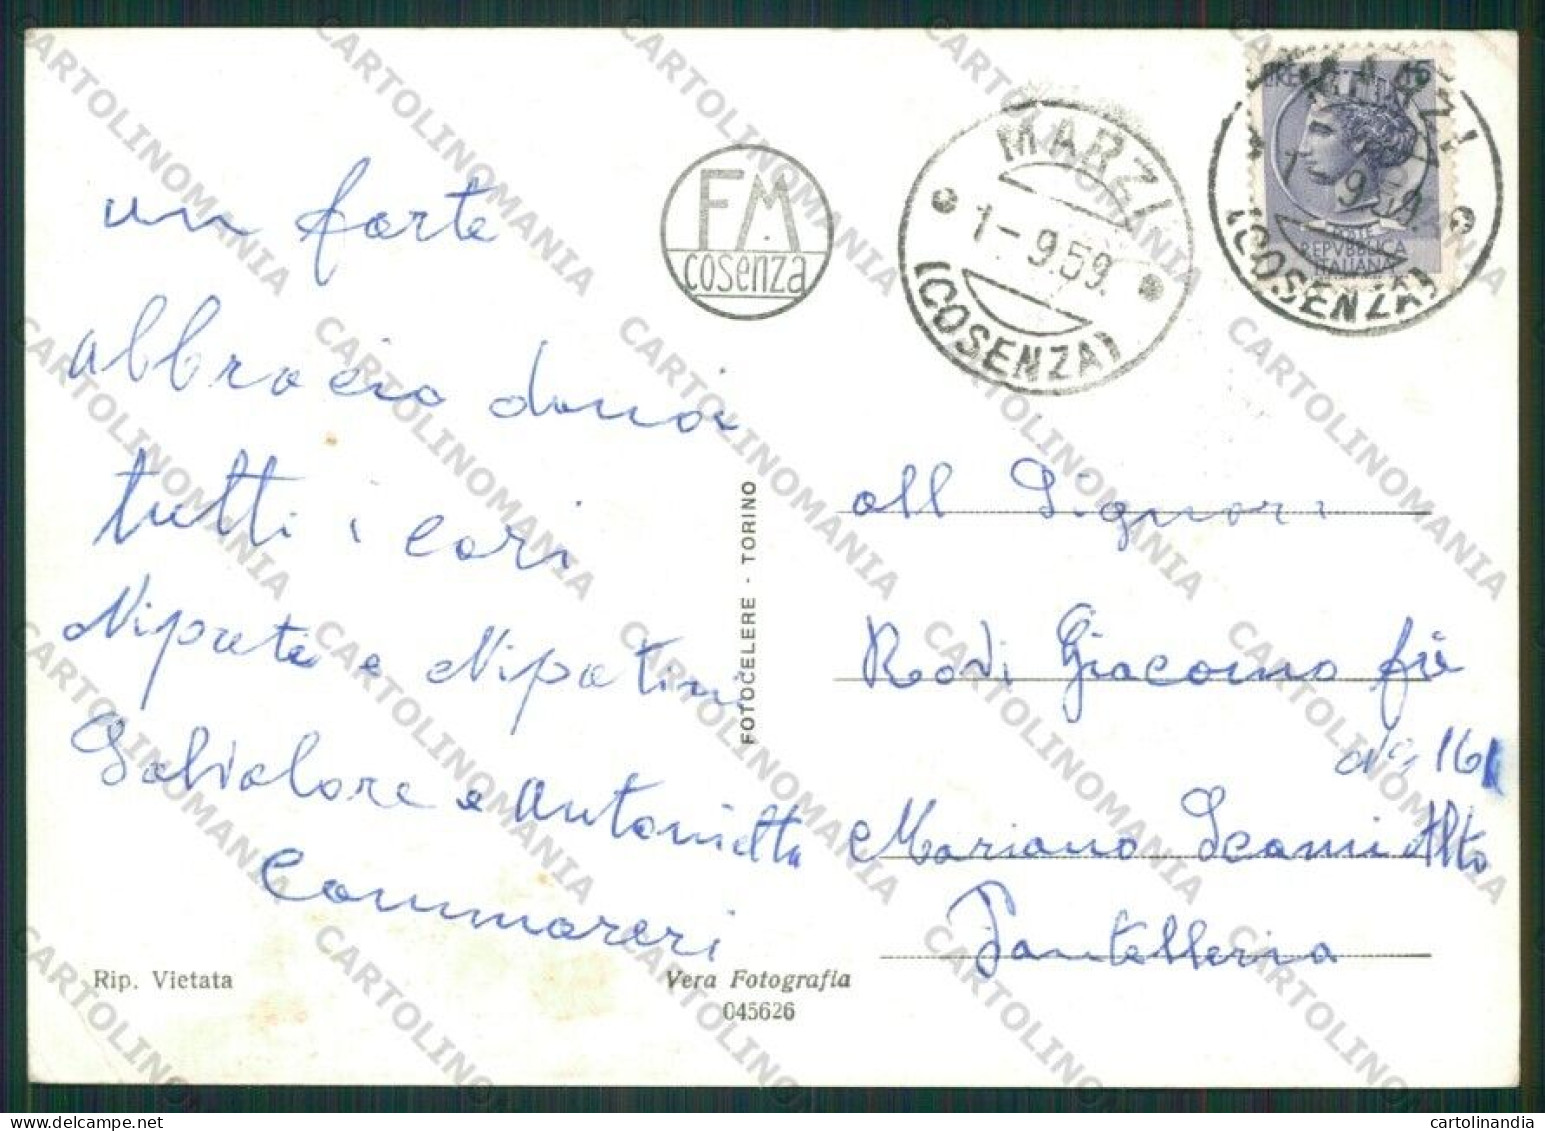 un forte
abbracio da noi
tutti i cari
Nipoti e Nipotini
Salvatore e Antonietta
Cammareri
Rip. Vietata
F.M
cosenza
MARZI
1-9.59.
(COSENZA)
MARZI
1-9.59.
(COSENZA)
LIRE 15
POSTE
REPVBBLICA
ITALIANA
FOTOCELERE - TORINO
all Signori
Rodi Giacomo fù
N° 161
Mariano Scauri Alto
Pantelleria
Vera Fotografia
045626
CARTOLINOMANIA
cartolinandia